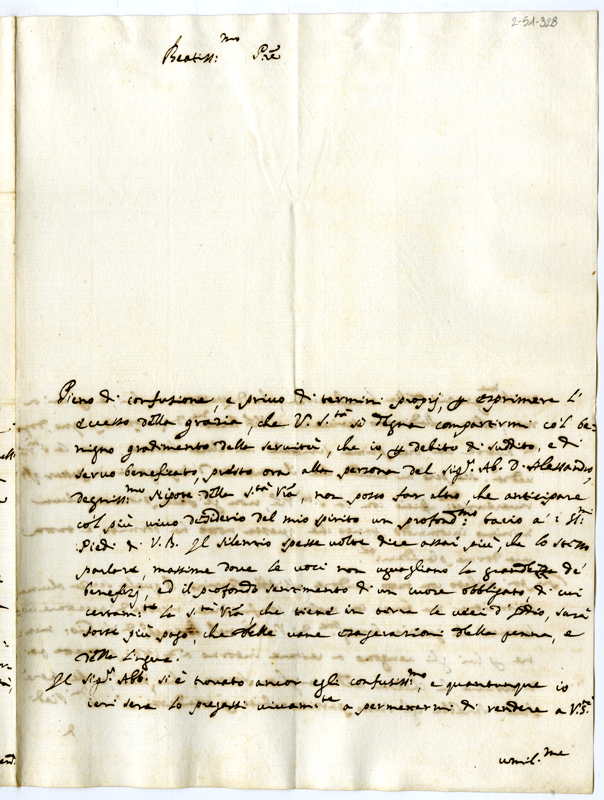 2-51-328
Beatiss:mo Pre
Pieno di confusione, e privo di termini proprj, p esprimere l'
eccesso della grazia, che V. S.tà si degna compartirmi col be-
nigno gradimento della servitù, che io, p debito di suddito, e di
servo beneficato, presto ora alla persona del Sigr. Ab. D. Alessandro,
degniss:mo Nipote della S.tà Vra, non posso far altro, che anticipare
col più vivo desiderio del mio spirito un profond:mo bacio a' i SS:mi
Piedi di V. B. Il silenzio spesse volte dice assai più, che lo stesso
parlare, massime dove le voci non uguagliano la grandezza de'
beneficj, ed il profondo sentimento di un cuore obbligato, di cui
certam:te la S.tà Vra, che tiene in terra le veci d'Iddio, sarà
forse più pago, che delle vane esagerazioni della penna, e
della lingua.
Il Sigr. Abb. si è trovato ancor egli confusiss:mo, e quantunque io
ieri sera lo pregassi vivam:te a permettermi di rendere a V. S.tà
umil.me